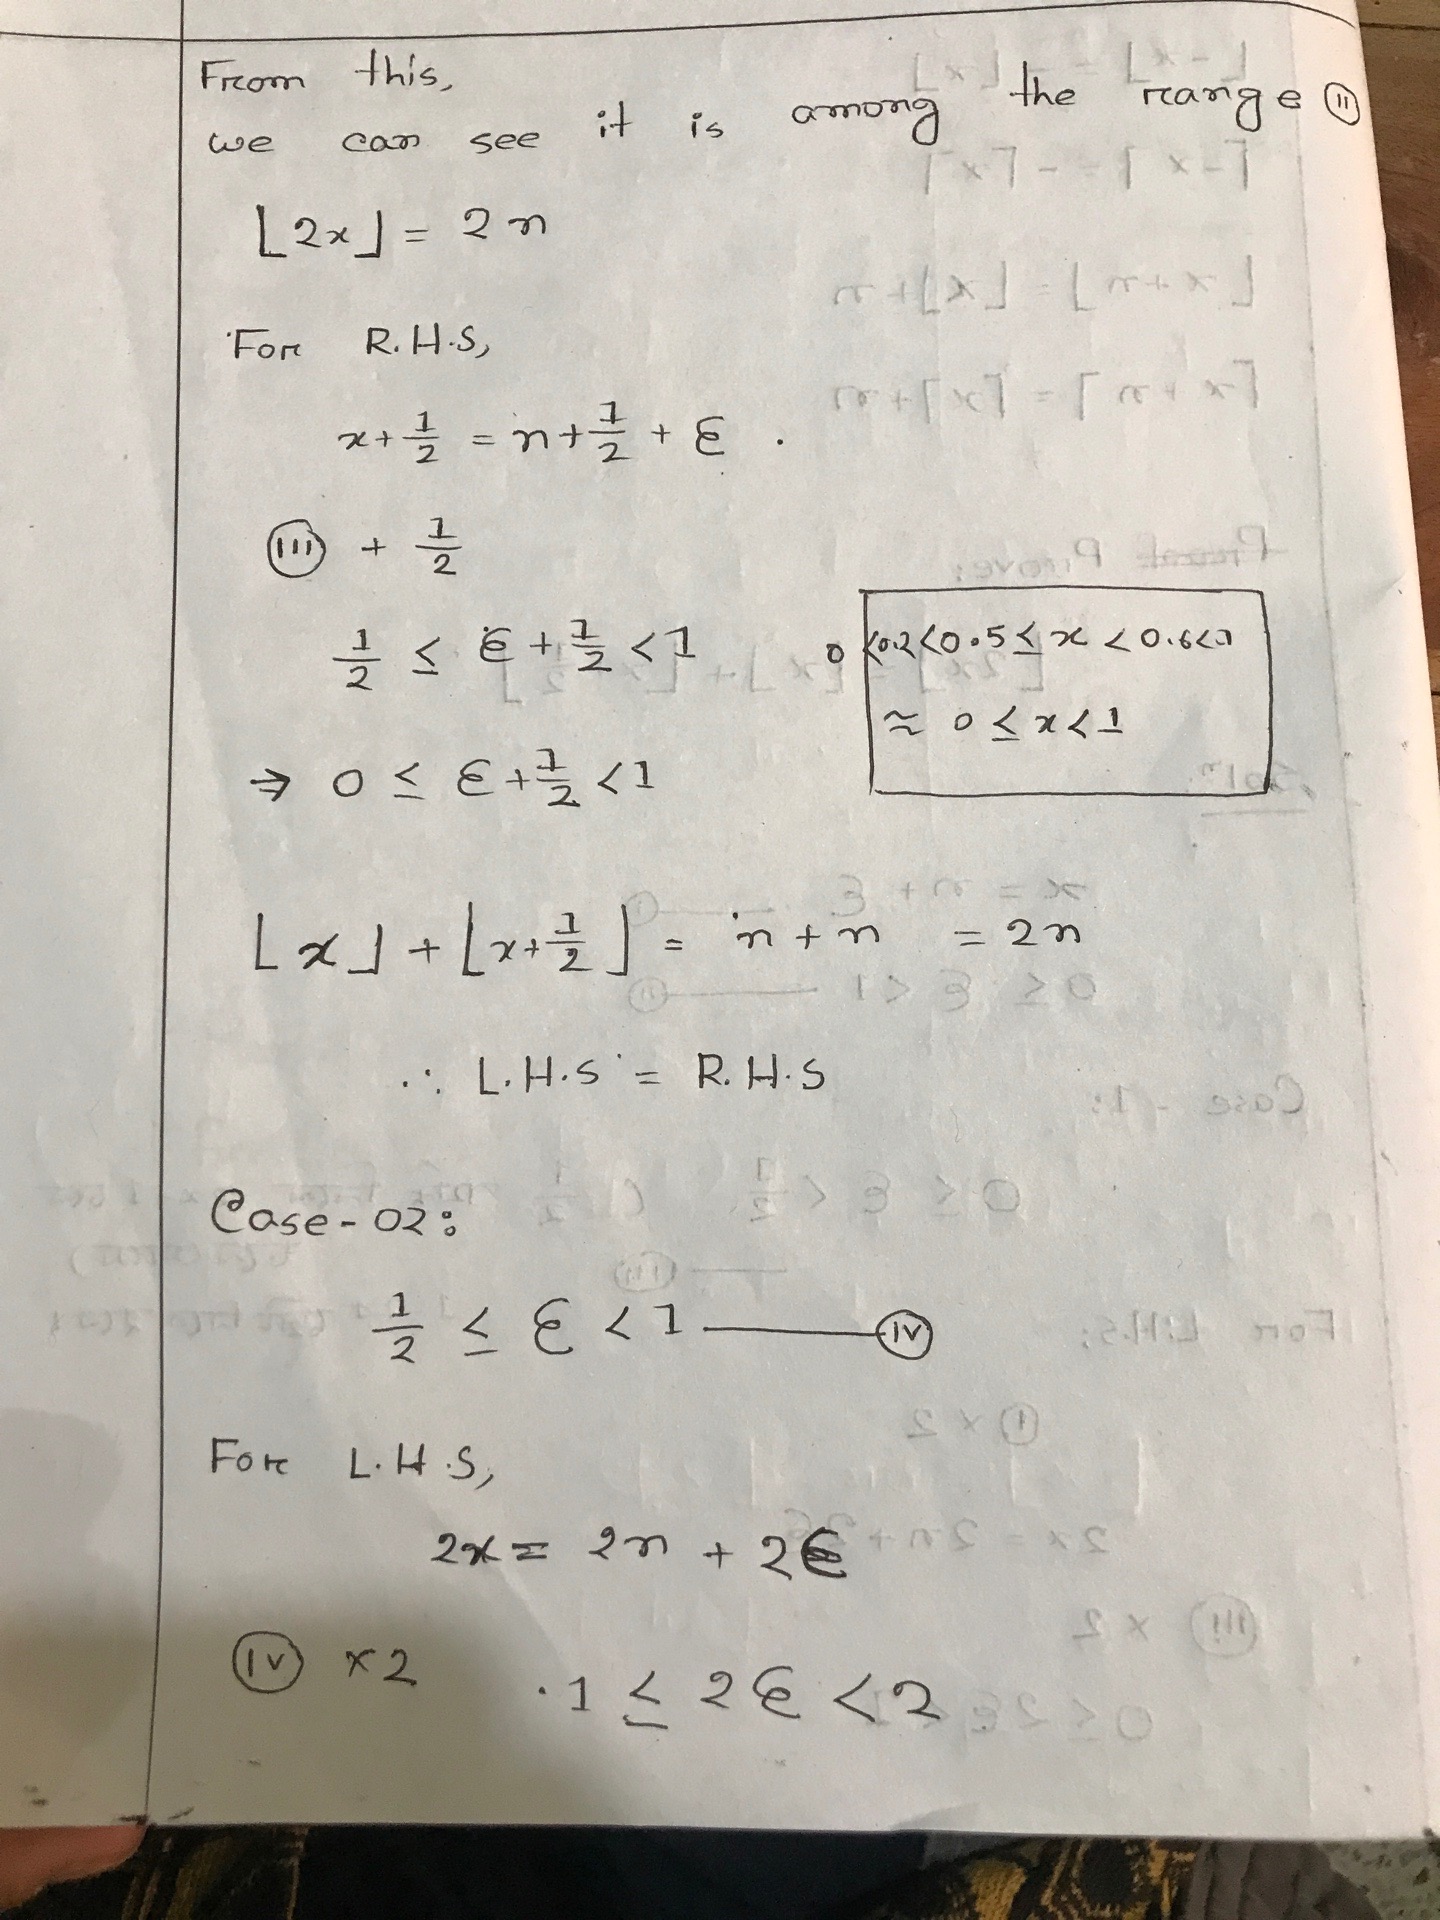 From this,
we can see it is among the range ⑪
⌊2x⌋ = 2n
For R.H.S,
x + 1/2 = n + 1/2 + ε .
(III) + 1/2
1/2 ≤ ε + 1/2 < 1
0 <0.2<0.5 ≤ x < 0.6<1
≈ 0 ≤ x < 1
⇒ 0 ≤ ε + 1/2 < 1
⌊x⌋ + ⌊x + 1/2⌋ = n + n = 2n
∴ L.H.S = R.H.S
Case-02:
1/2 ≤ ε < 1 —— (IV)
For L.H.S,
2x = 2n + 2ε
(IV) × 2 1 ≤ 2ε < 2